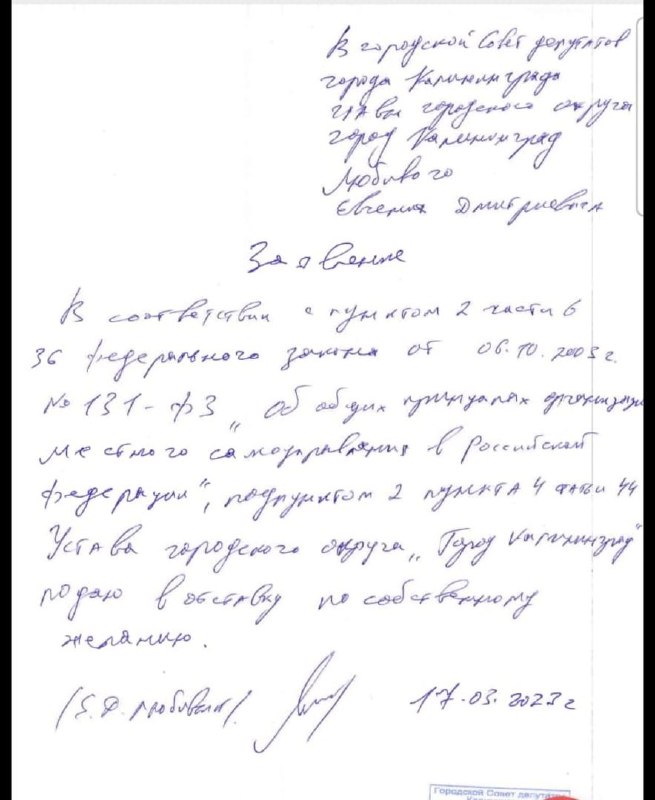 В городской Совет депутатов
города Калининграда
главы городского округа
город Калининград
Любивого
Евгения Дмитриевича
Заявление
В соответствии с пунктом 2 части 6
36 федерального закона от 06.10.2003 г.
№ 131-ФЗ „Об общих принципах организации
местного самоуправления в Российской
Федерации", подпунктом 2 пункта 4 статьи 44
Устава городского округа „Город Калининград"
подаю в отставку по собственному
желанию.
/Е.Д. Любивый/. 17.03.2023 г
Городской Совет депутатов